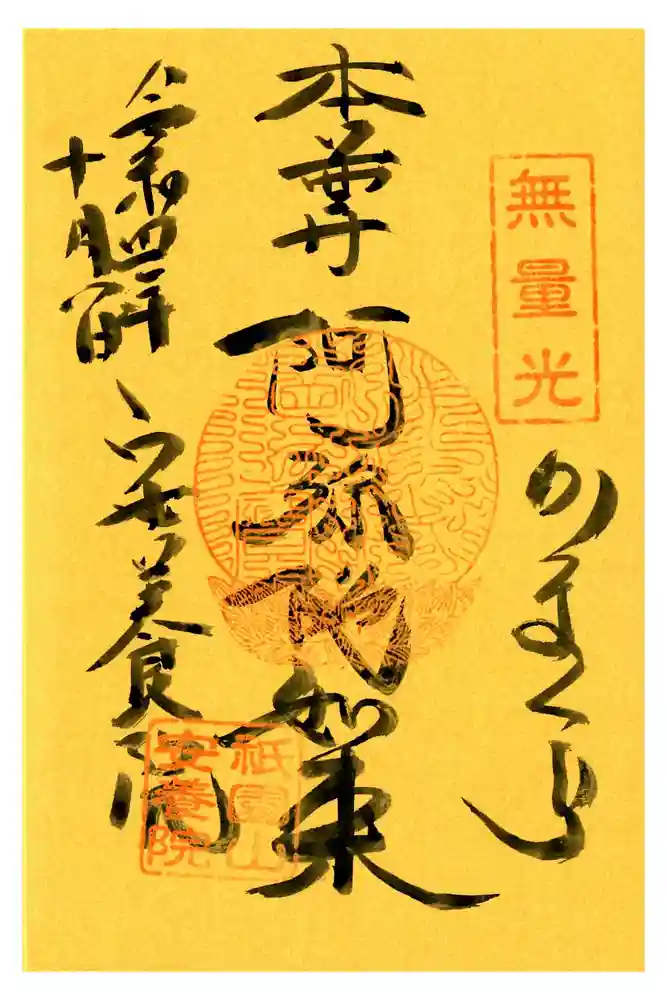 無量光
かまくら
本尊 阿弥陀如来
令和四年
十月
安養院
祇園山
安養院